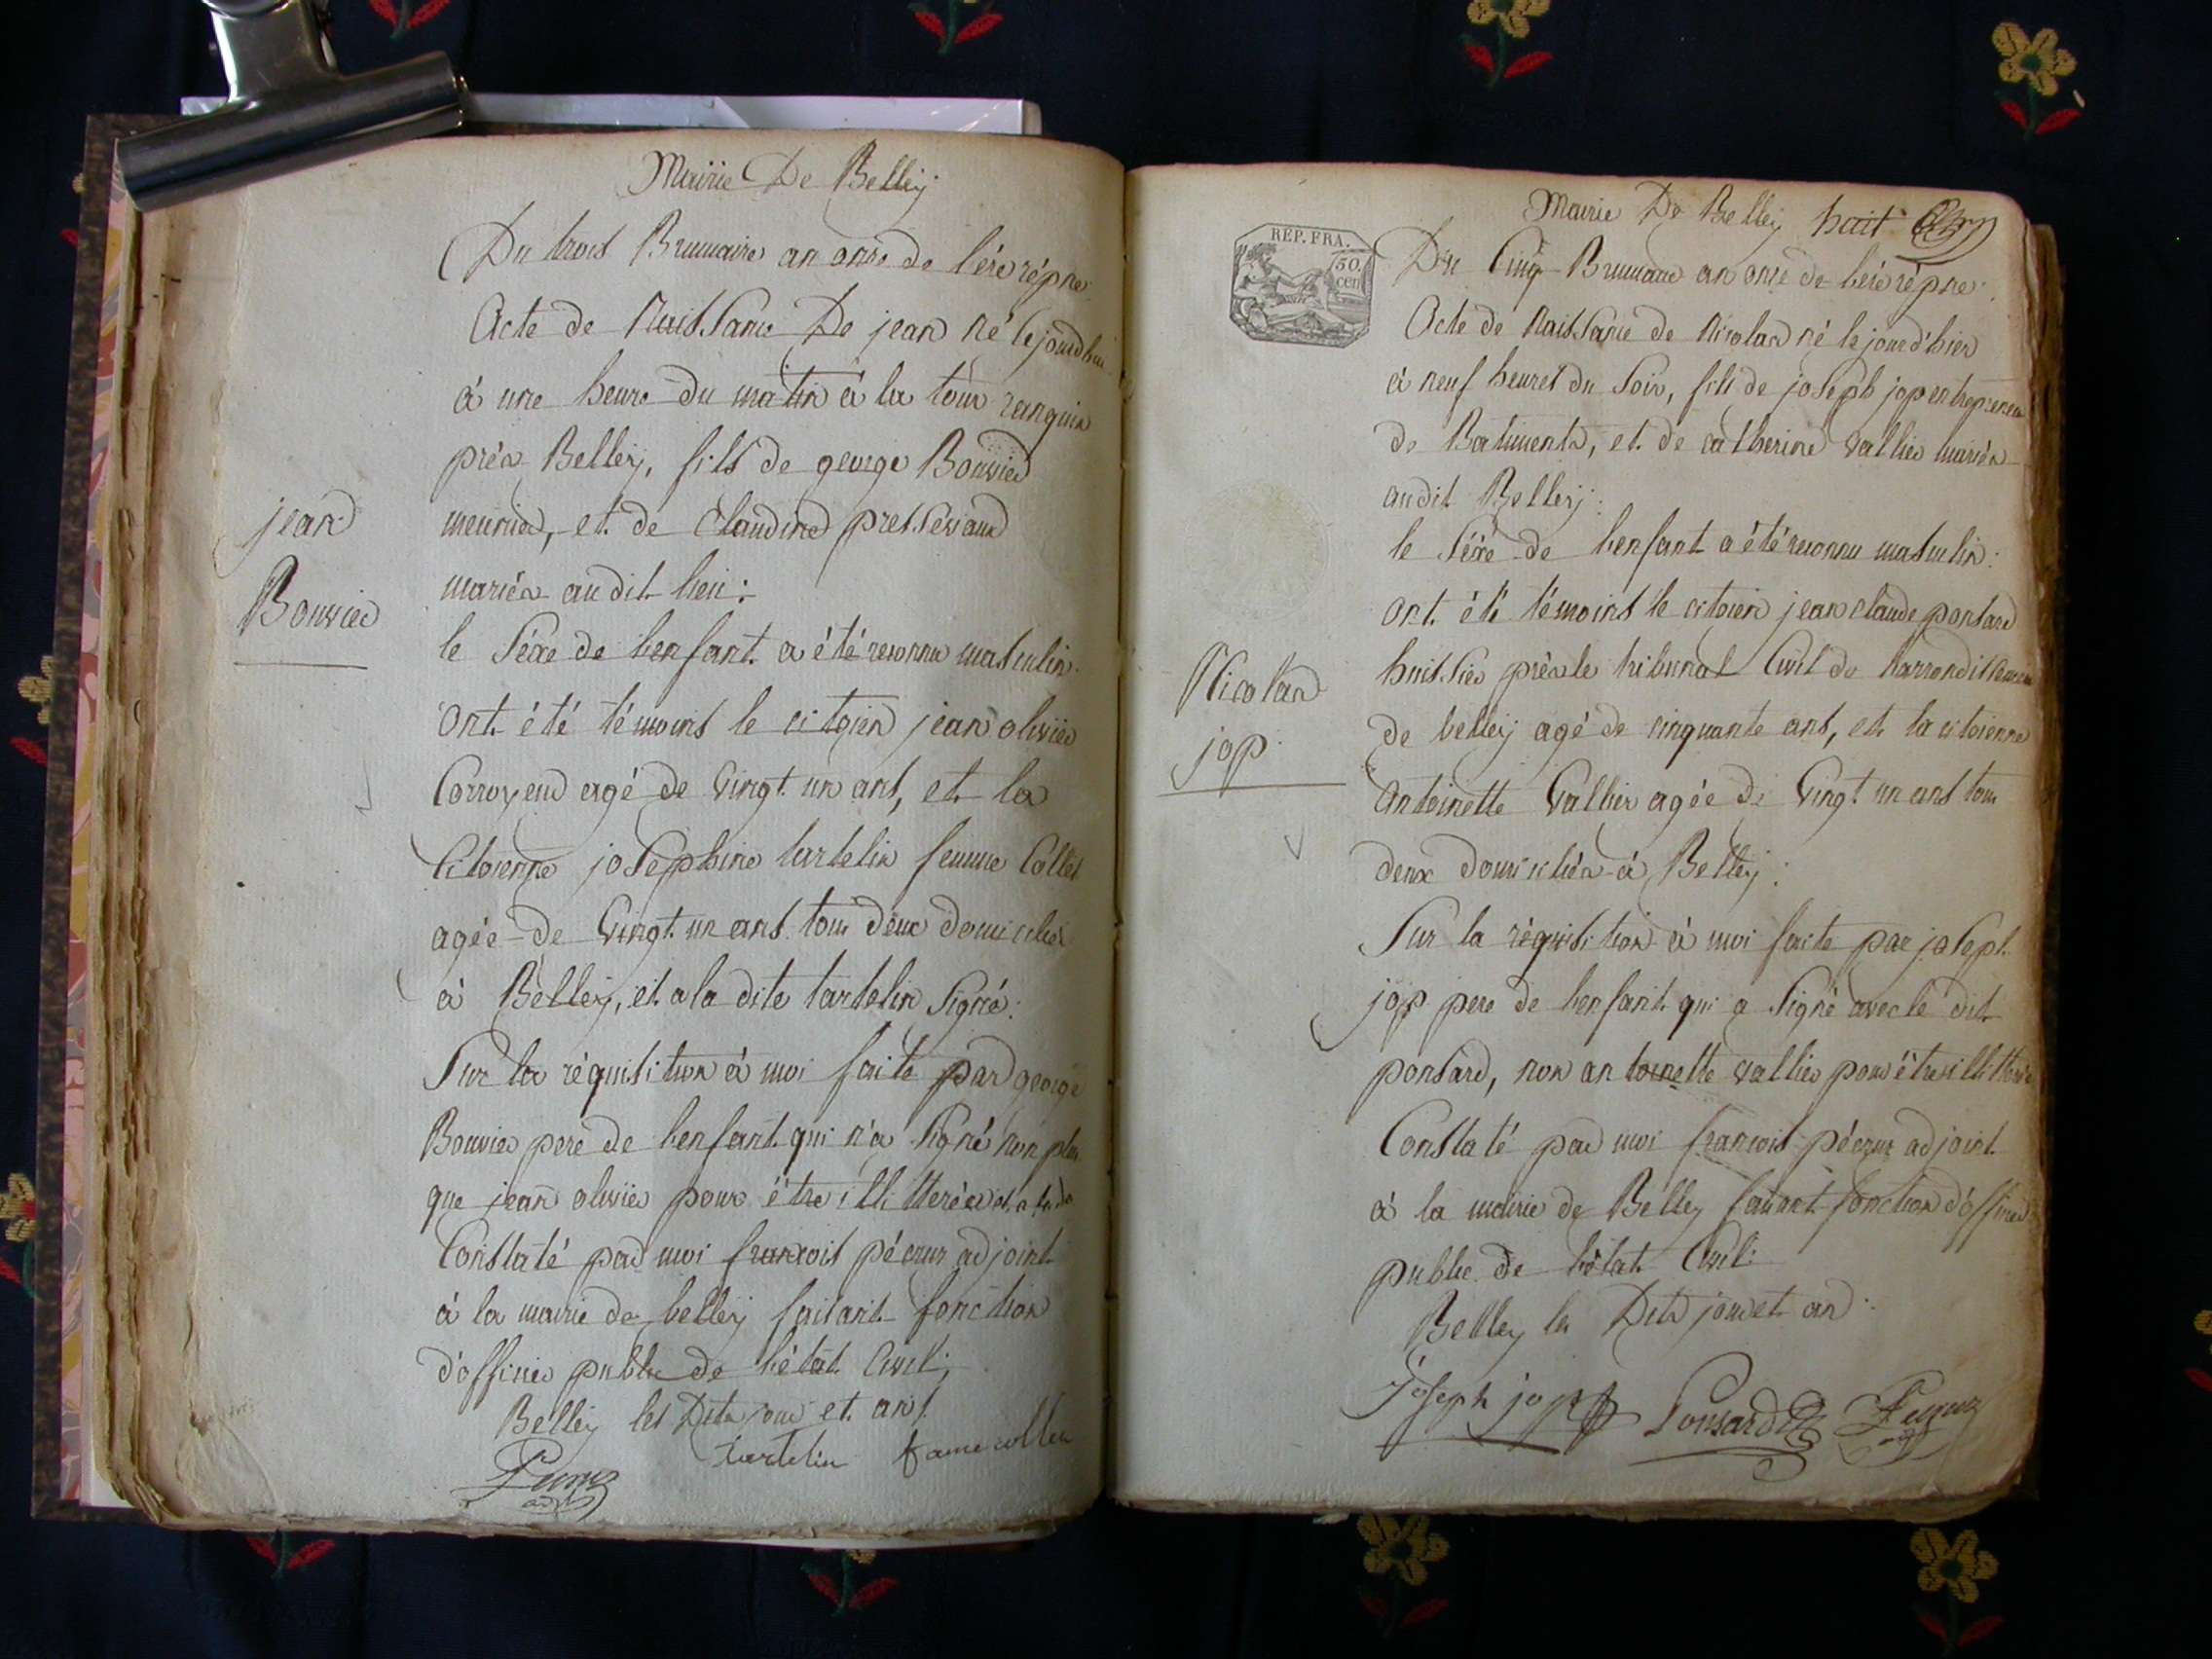 Mairie De Belley
Du trois Brumaire an onze de l'ère répne
Acte de Naissance De jean né cejourdhui
à une heure du matin à la tour ranquin
près Belley, fils de george Bouvier
meunier, et de Claudine presSevaux
mariés audit lieu :
le Séxe de lenfant a été reconnu masculin.
Ont été témoins le citoien jean olivier
Corroyeur agé de Vingt un ans, et la
Citoienne joSephine tartelin femme Collet
agée de Vingt un ans tous deux domiciliés
à Belley, et a la dite tartelin Signé :
Sur la réquisition à moi faite par george
Bouvier pere de lenfant qui n'a Signé non plus
que jean olivier pour être illitterés
Constaté par moi francois pécour adjoint
à la mairie de belley faisant fonction
d'officier public de l'état Civil.
Belley les Dits jour et ans
tartelin fame collet
jean
Bouvier
Mairie De Belley huit
RÉP. FRA.
50.
cen
Du Cinq Brumaire an onze de l'ère répne.
Acte de Naissance de Nicolas né le jour d'hier
à neuf heures du Soir, fils de joSeph jop entrepreneur
de Batiments, et de catherine Vallier mariés
audit Belley :
le Séxe de lenfant a été reconnu masculin :
Ont été témoins le citoien jean claude ponsard
huissier près le tribunal Civil de l'arrondissement
de belley agé de cinquante ans, et la citoienne
Antoinette Vallier agée de Vingt un ans tous
deux domiciliés à Belley :
Sur la réquisition à moi faite par joSeph
jop pere de lenfant qui a Signé avec le dit
ponsard, non antoinette Vallier pour être illitterée
Constaté par moi francois pécour adjoint
à la mairie de Belley faisant fonction d'officier
public de l'état Civil :
Belley les Dits jour et an :
Joseph jop Ponsard
Nicolas
jop